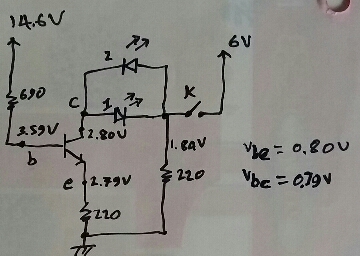 14.6V
6V
2
690
C
1
K
3.59V
2.80V
1.8AV
b
220
Vbe = 0.80V
e
2.79V
Vbc = 0.79V
220